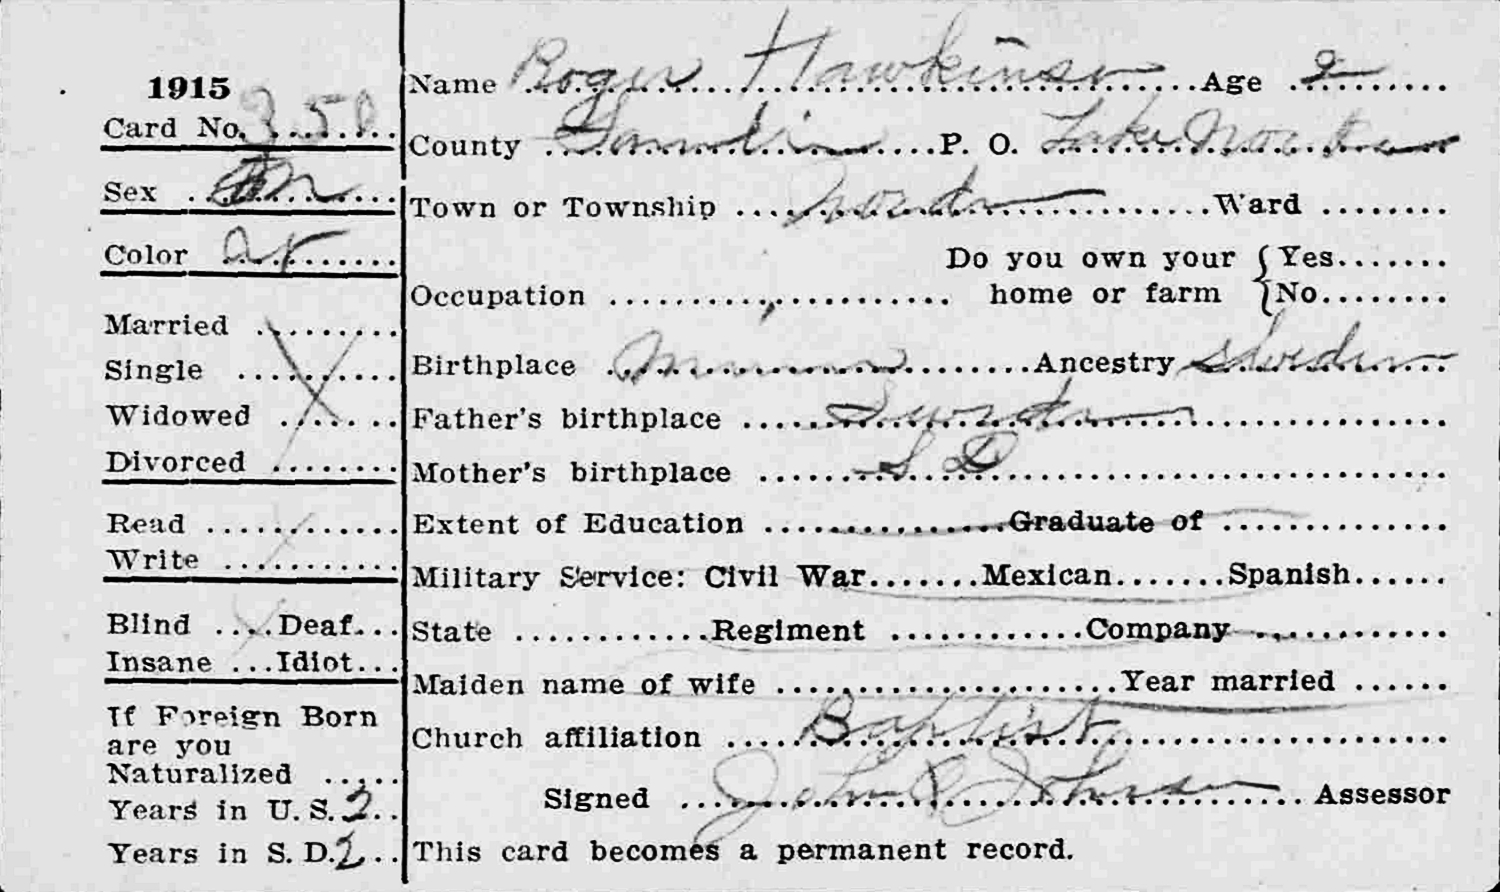 1915
Card No. 350
Sex M
Color W
Married
Single
Widowed
Divorced
Read
Write
Blind Deaf
Insane Idiot
If Foreign Born
are you
Naturalized
Years in U. S. 2
Years in S. D. 2
Name Roger Hawkinson Age 2
County Hamlin P. O. Lake Norden
Town or Township Norden Ward
Do you own your Yes
Occupation home or farm No
Birthplace Ancestry Sweden
Father's birthplace Sweden
Mother's birthplace S D
Extent of Education Graduate of
Military Service: Civil War Mexican Spanish
State Regiment Company
Maiden name of wife Year married
Church affiliation Baptist
Signed John Johnson Assessor
This card becomes a permanent record.